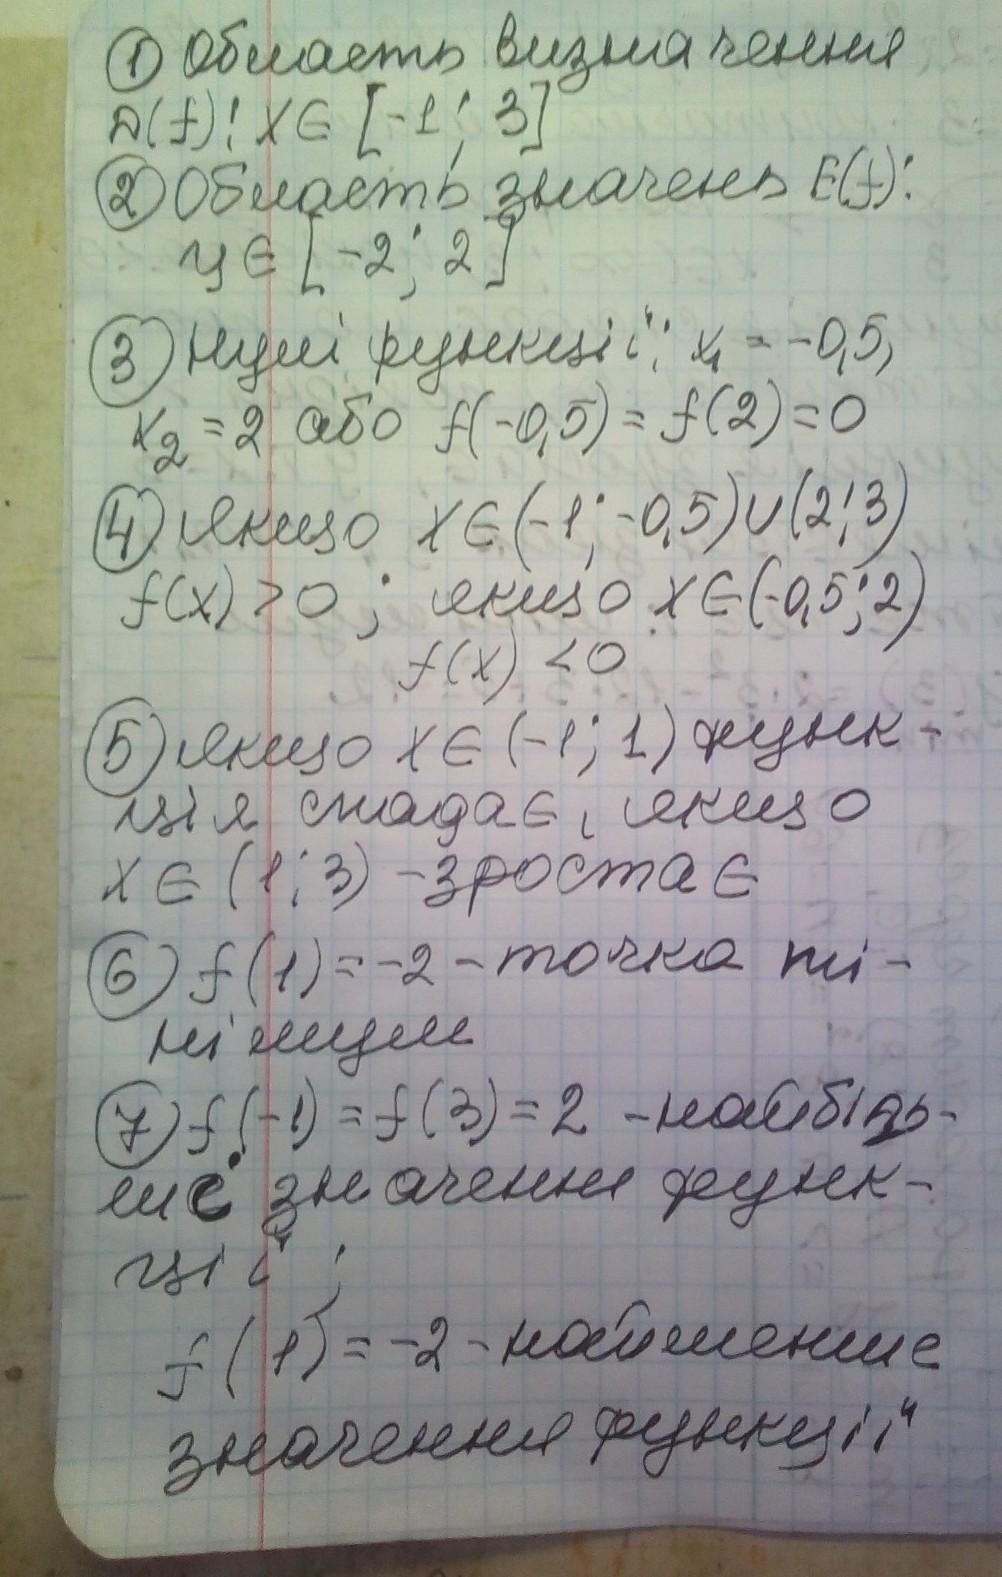 ① Область визначення
D(f): x∈ [-1; 3]
② Область значень E(f):
y∈ [-2; 2]
③ Нулі функції: x₁ = -0,5,
x₂ = 2 або f(-0,5) = f(2) = 0
④ Якщо x∈(-1; -0,5)∪(2;3)
f(x) > 0; якщо x∈(-0,5;2)
f(x) < 0
⑤ Якщо x∈(-1; 1) функ-
ція спадає, якщо
x∈ (1; 3) - зростає
⑥ f(1) = -2 - точка мі-
німум
⑦ f(-1) = f(3) = 2 - найбіль-
ше значення функ-
ції ;
f(1) = -2 - найменше
значення функції